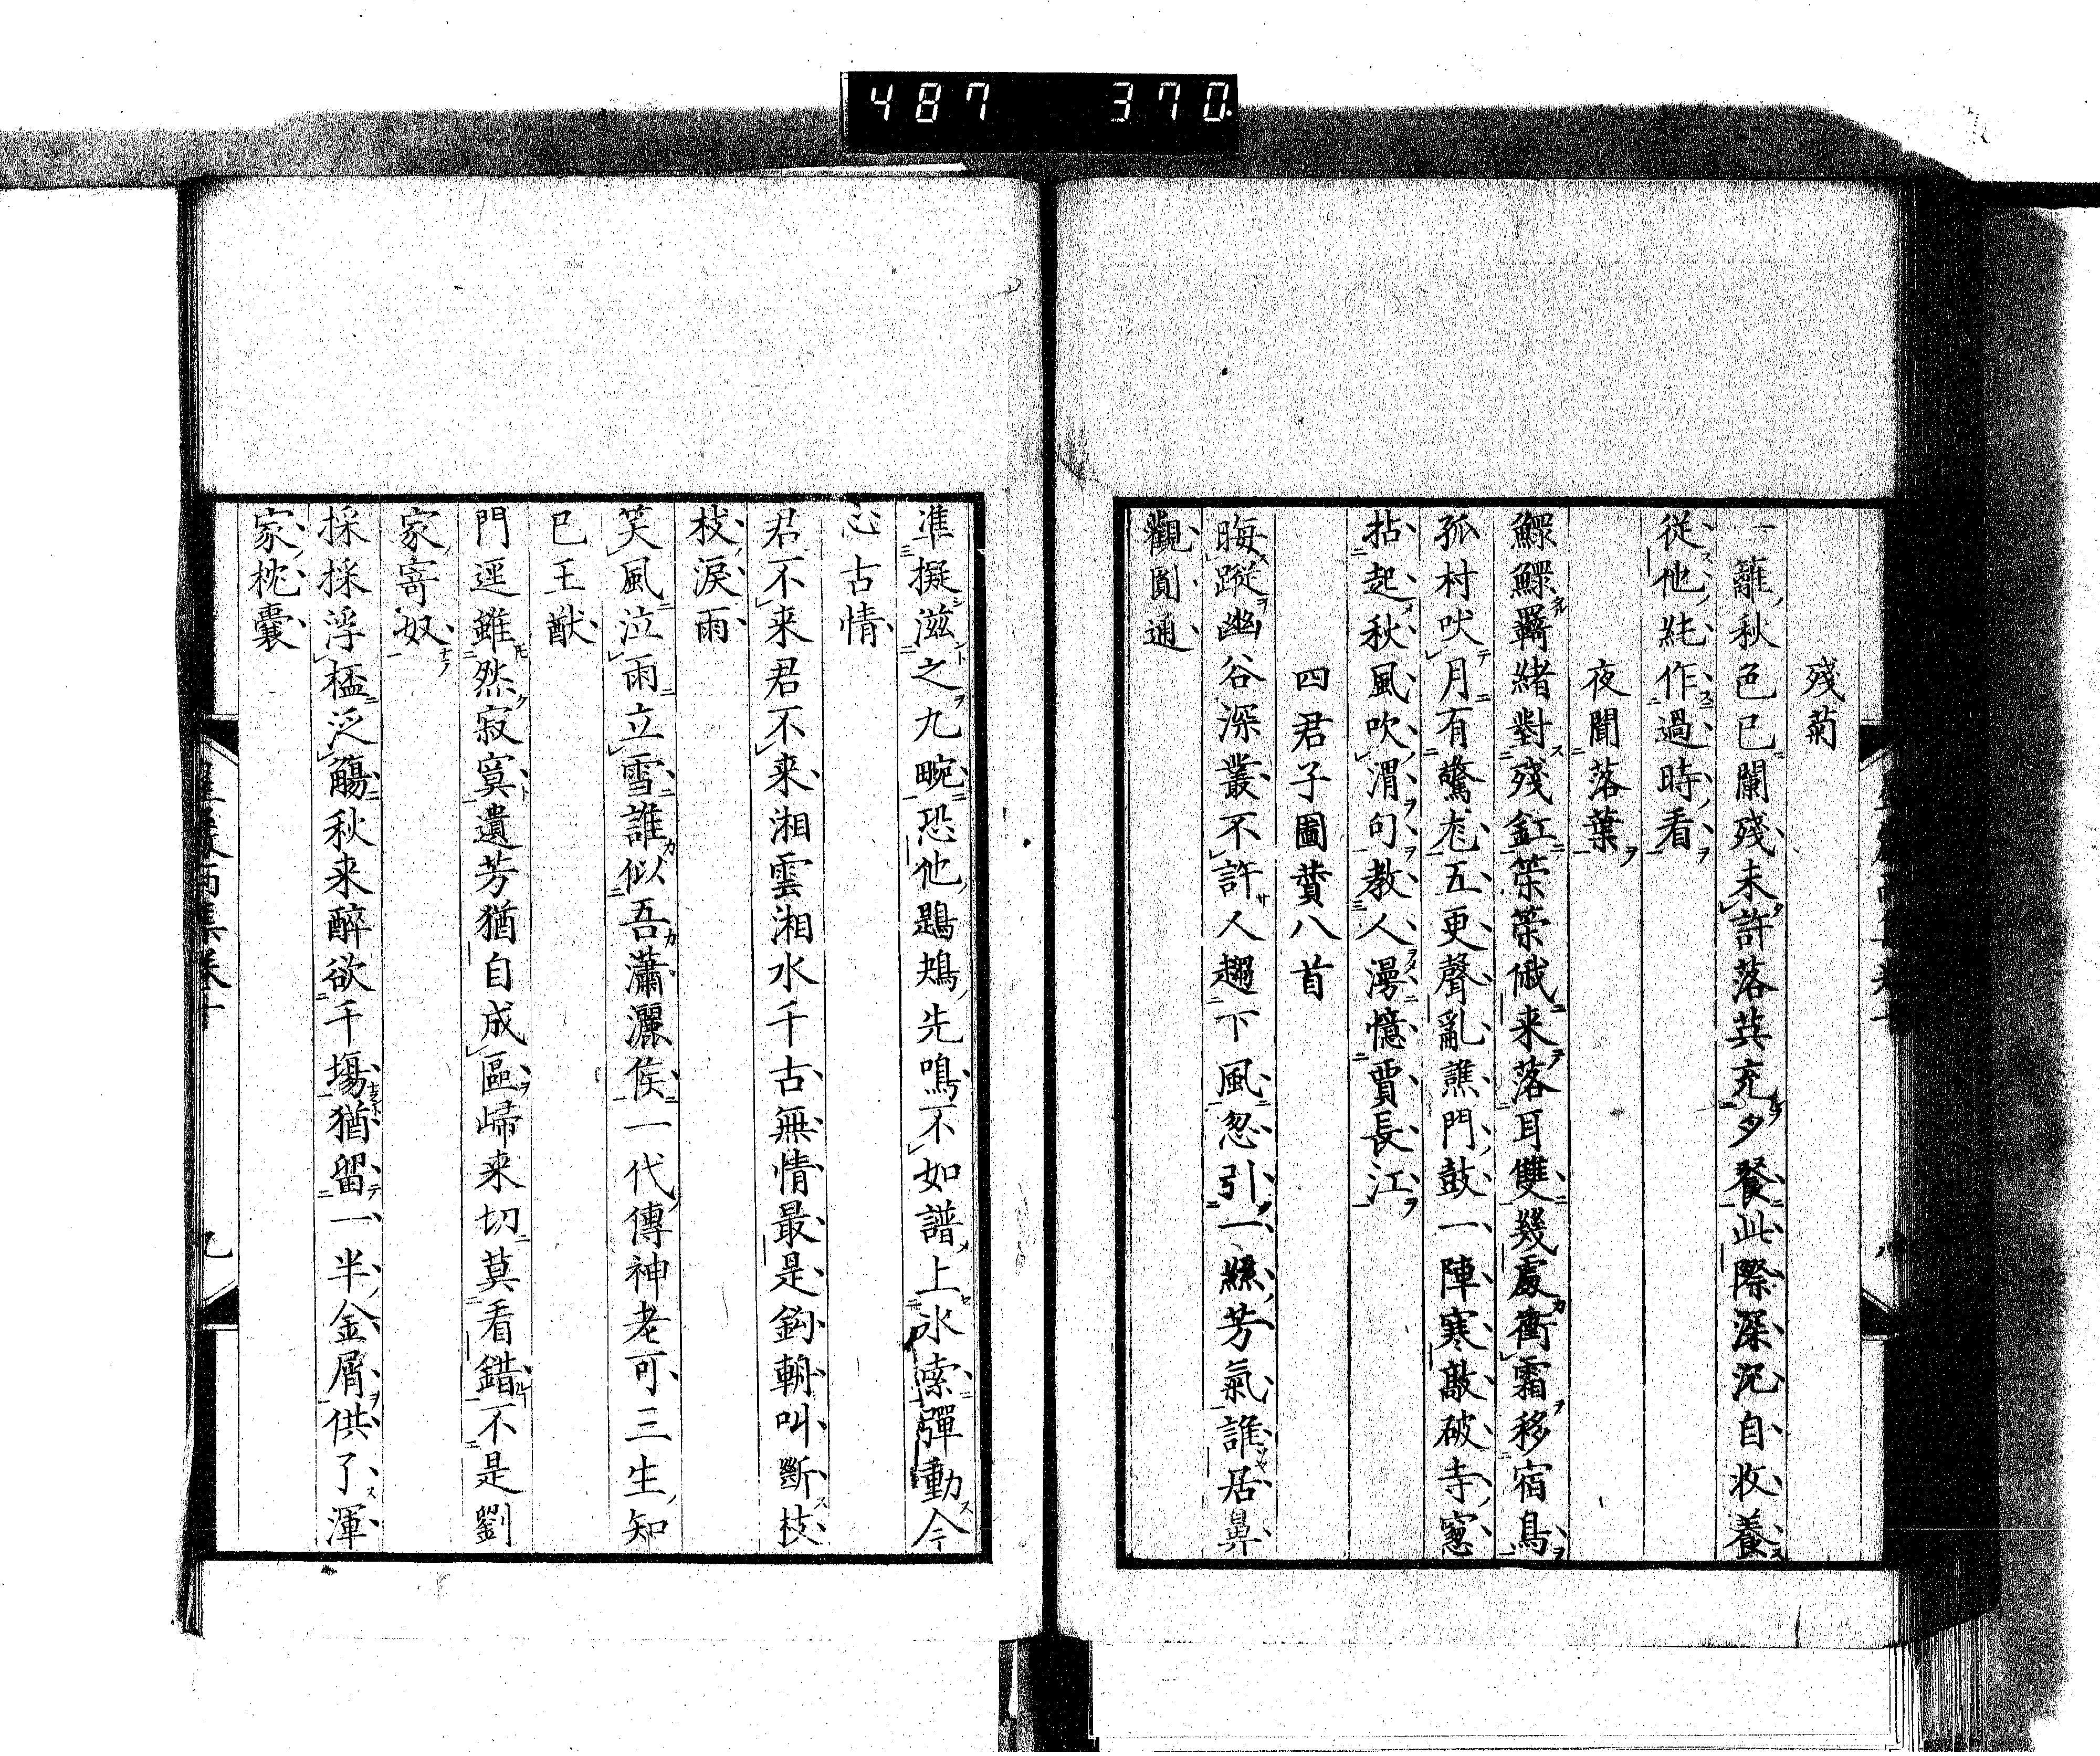 487 370
殘菊
一籬秋色已闌殘未許落英充夕餐此際深沉自收養
從他純作過時看
夜聞落葉
鰥鰥羇緒對殘釭策策俄来落耳雙幾處衝霜移宿鳥
孤村吠月有驚尨五更聲亂譙門鼓一陣寒敲破寺窓
拈起秋風吹渭句教人漫憶賈長江
四君子圖賛八首
晦蹤幽谷深叢不許人趨下風忽引一縣芳氣誰居鼻
觀圓通
準擬滋之九畹恐他鶗鴂先鳴不如譜上氷索彈動今
心古情
君不来君不来湘雲湘水千古無情最是鈎輈叫斷枝
枝淚雨
笑風泣雨立雪誰似吾瀟灑侯一代傳神老可三生知
已王猷
門逕雖然寂寞遺芳猶自成區帰来切莫看錯不是劉
家寄奴
採採浮榼泛觴秋来醉欲千場猶留一半金屑供了渾
家枕囊